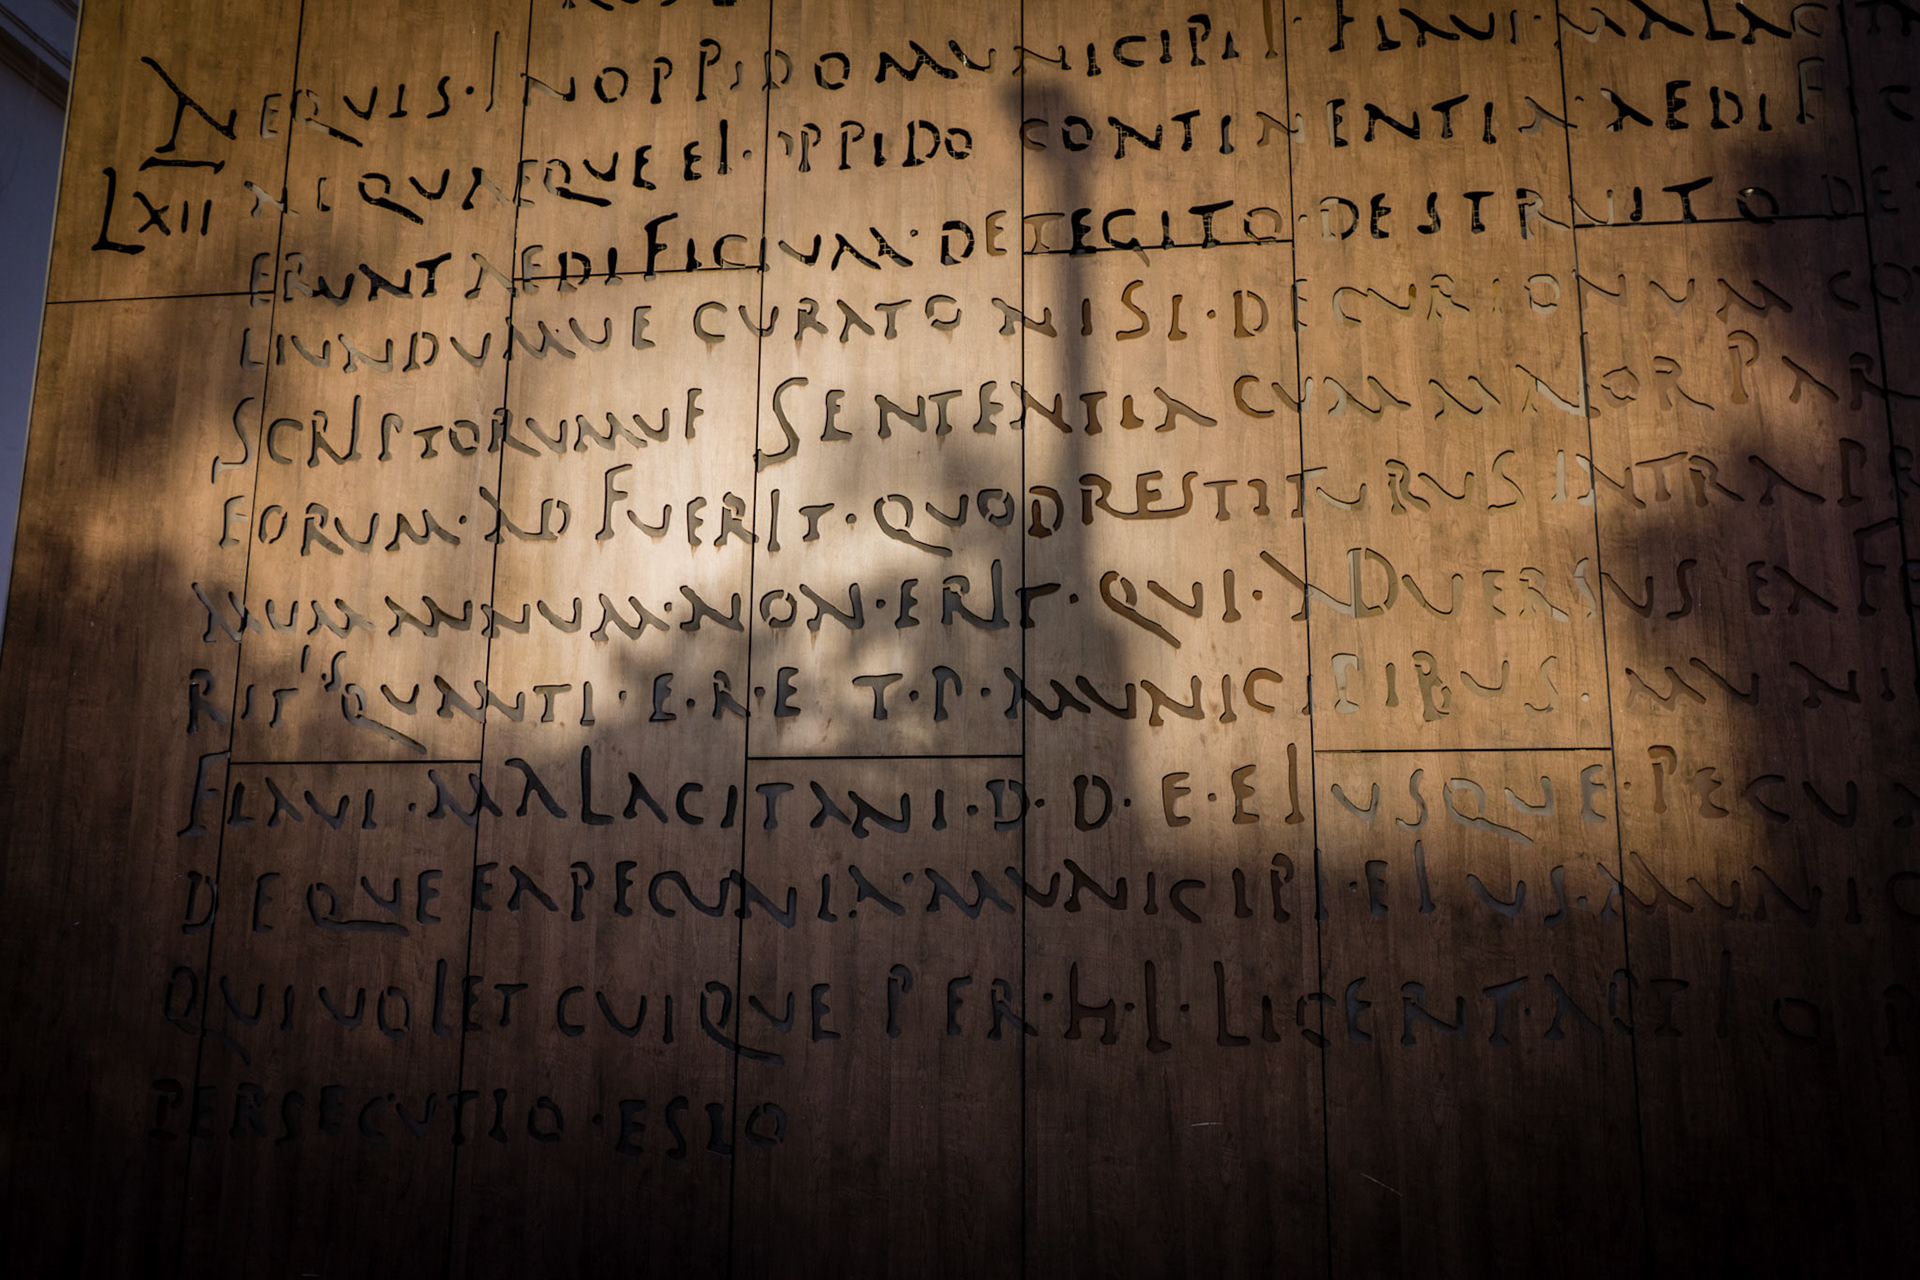 NEQUIS · INOPPIDO MUNICIPI · FLAVI · MALAC
LXII NI QUAEQUE EI · OPPIDO CONTINENTIA AEDIFIC
ERUNT AEDIFICIUM · DETEGITO · DESTRUITO DE
LIUNDUMUE CURATO NISI · DECURIONUM CO
SCRIPTORUMUE SENTENTIA CUM MAIOR PAR
EORUM · AD FUERIT · QUOD RESTITURUS INTRA PR
MUM ANNUM · NON · ERIT · QUI · ADUERSUS EA FE
RIT IS QUANTI · E · R · E T · P · MUNICIPIBUS · MUNI
FLAVI · MALACITANI · D · D · E · EIUSQUE · PECU
DEQUE EA PECUNIA · MUNICIPI · EIUS · MUNIC
QUI UOLET CUIQUE PER · H · L · LICEBIT · ACTIO P
PERSECUTIO · ESTO